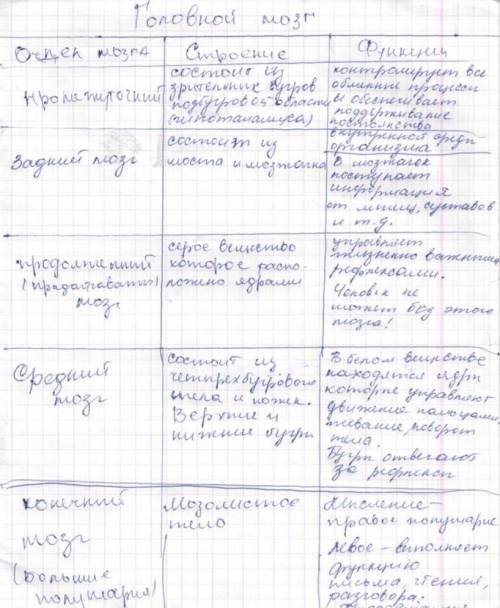 Головной мозг
Отдел мозга
Строение
Функции
промежуточный
состоит из
зрительных бугров
подбугровой области
(гипоталамуса)
контролирует все
обменные процессы
и обеспечивает
поддерживание
постоянства
внутренней среды
организма
Задний мозг
состоит из
моста и мозжечка
В мозжечок
поступает
информация
от мышц, суставов
и т.д.
продолговатый
мозг
серое вещество
которое распо-
ложено ядрами
управляет
жизненно важными
рефлексами.
Человек не
может без этого
мозга!
Средний
мозг
состоит из
четырёхбугрового
тела и ножек.
Верхние и
нижние бугры
В белом веществе
находятся ядра
которые управляют
движение пальцами,
жевание, поворот
тела.
Бугры отвечают
за рефлексы
конечный
мозг
(большие
полушария)
Мозолистое
тело
Мышление -
правое полушарие
Левое - выполняет
функцию
письма, чтения,
разговора.